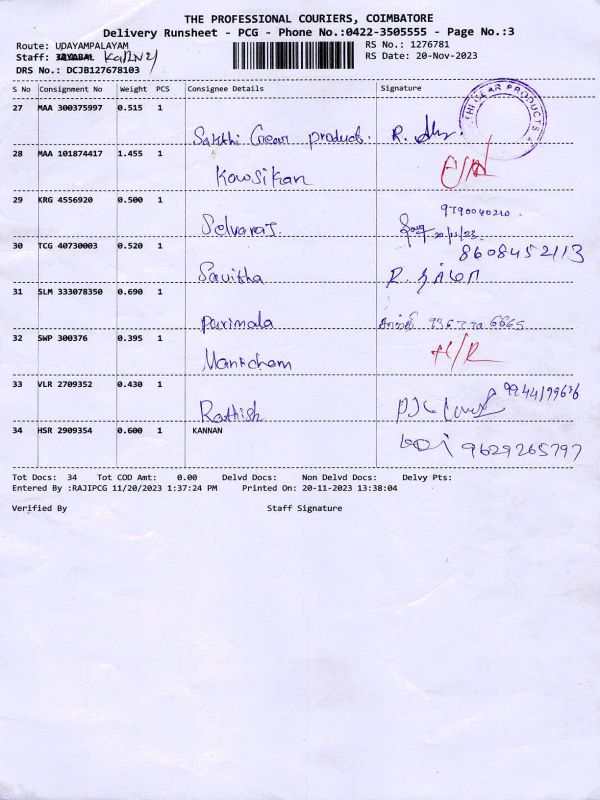 THE PROFESSIONAL COURIERS, COIMBATORE
Delivery Runsheet - PCG - Phone No.:0422-3505555 - Page No.:3
Route: UDAYAMPALAYAM RS No.: 1276781
Staff: RS Date: 20-Nov-2023
DRS No.: DCJB127678103
S No Consignment No Weight PCS Consignee Details Signature
27 MAA 300375997 0.515 1 Sakthi Gear product. R.
THI GEAR PRODUCTS
28 MAA 101874417 1.455 1 Kowsikan
29 KRG 4556920 0.500 1 Selvaraj. 9790040210.
20/11/23
30 TCG 40730003 0.520 1 Savitha 8608452113
R.
31 SLM 333078350 0.690 1 Parimala
32 SWP 300376 0.395 1 Manickam H/R
33 VLR 2709352 0.430 1 Rathish 9944199636
34 HSR 2909354 0.600 1 KANNAN 9629265797
Tot Docs: 34 Tot COD Amt: 0.00 Delvd Docs: Non Delvd Docs: Delvy Pts:
Entered By :RAJIPCG 11/20/2023 1:37:24 PM Printed On: 20-11-2023 13:38:04
Verified By Staff Signature